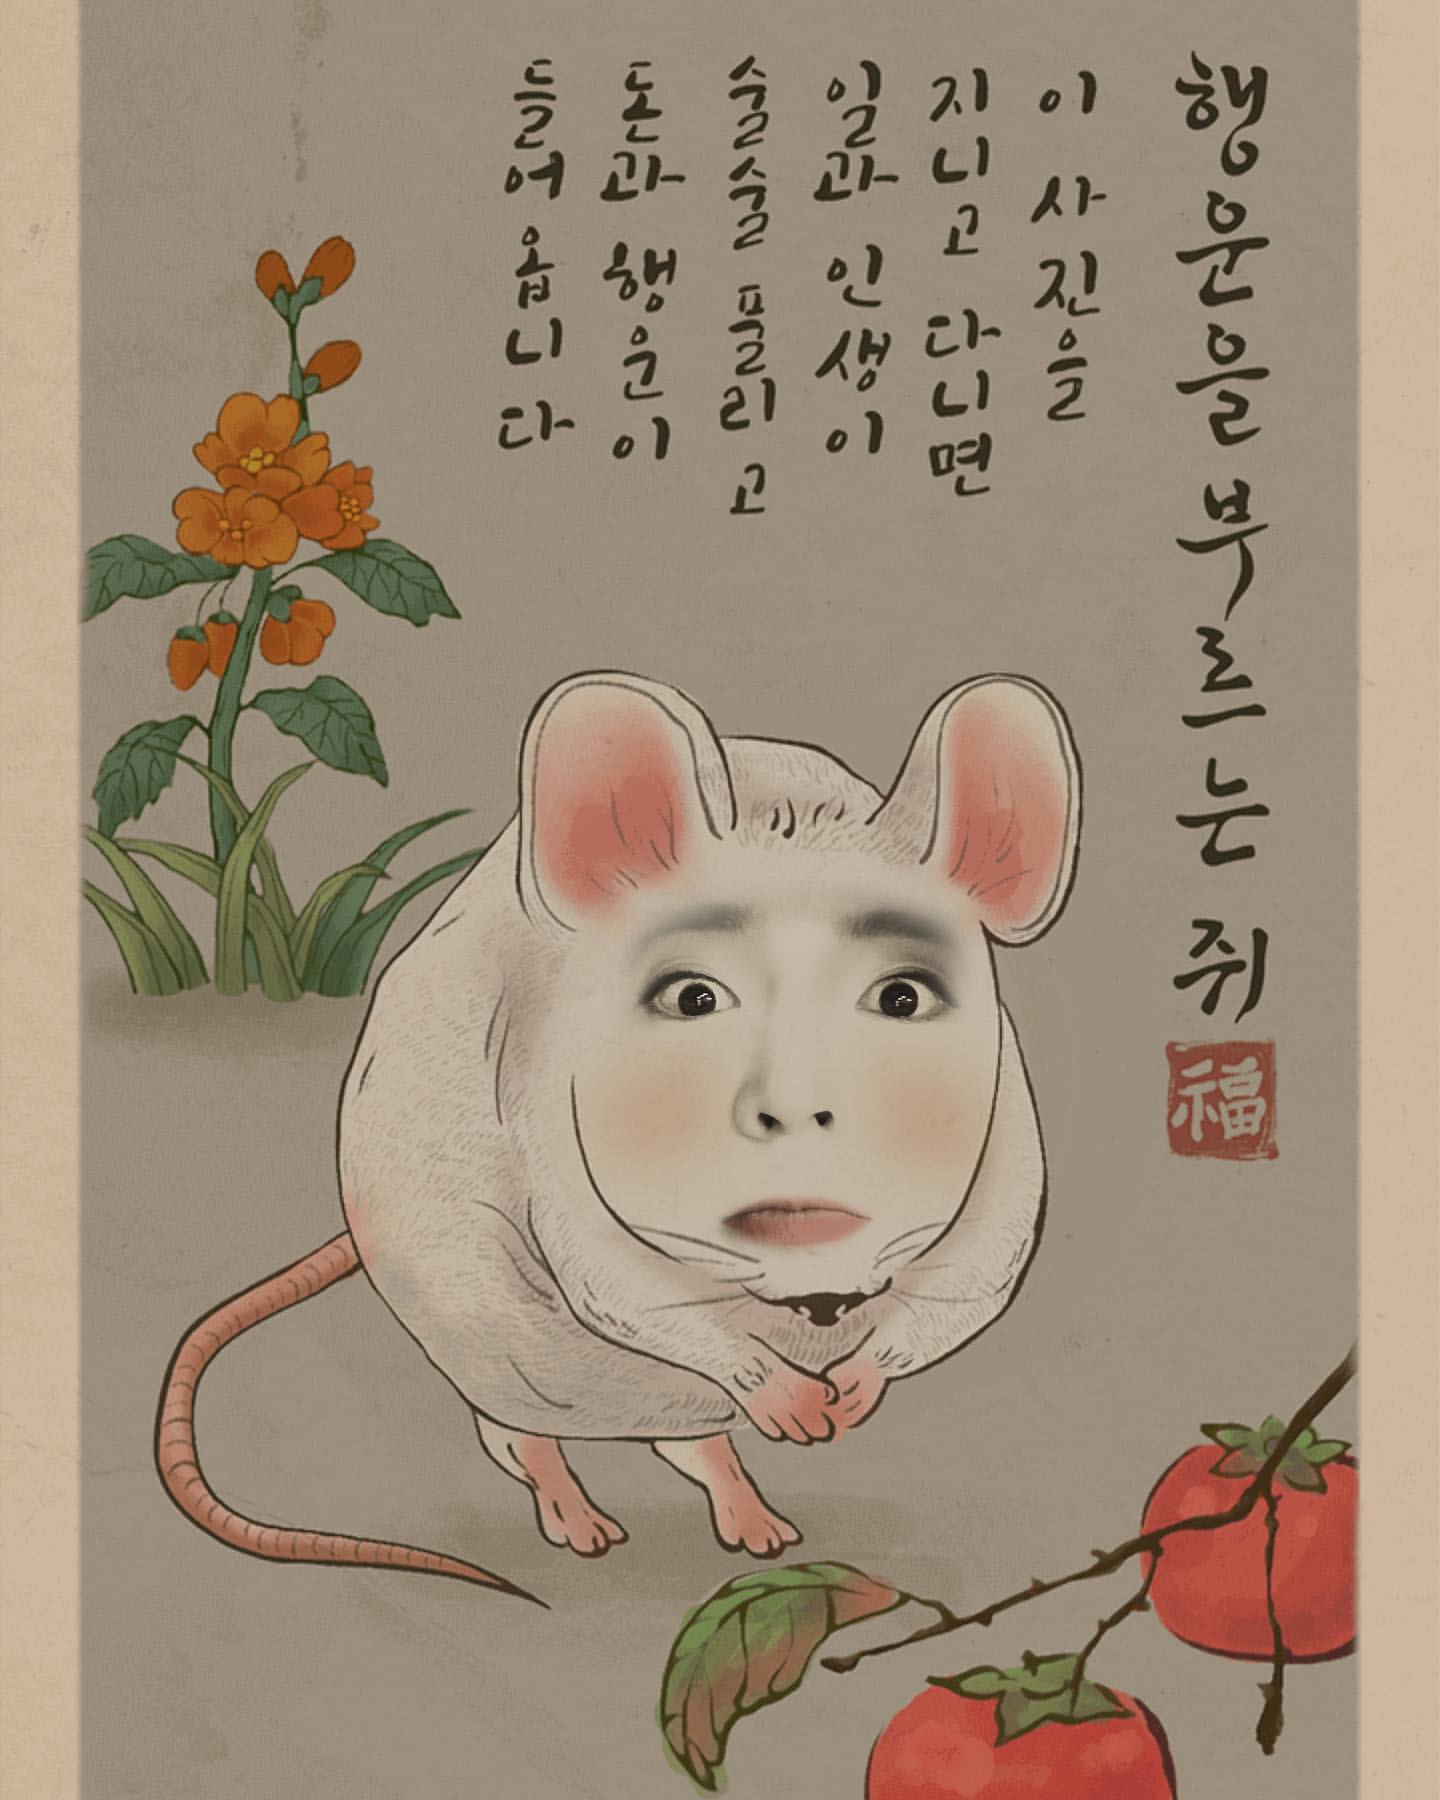 행운을 부르는 쥐
福
이 사진을
지니고 다니면
일과 인생이
술술 풀리고
돈과 행운이
들어 옵니다